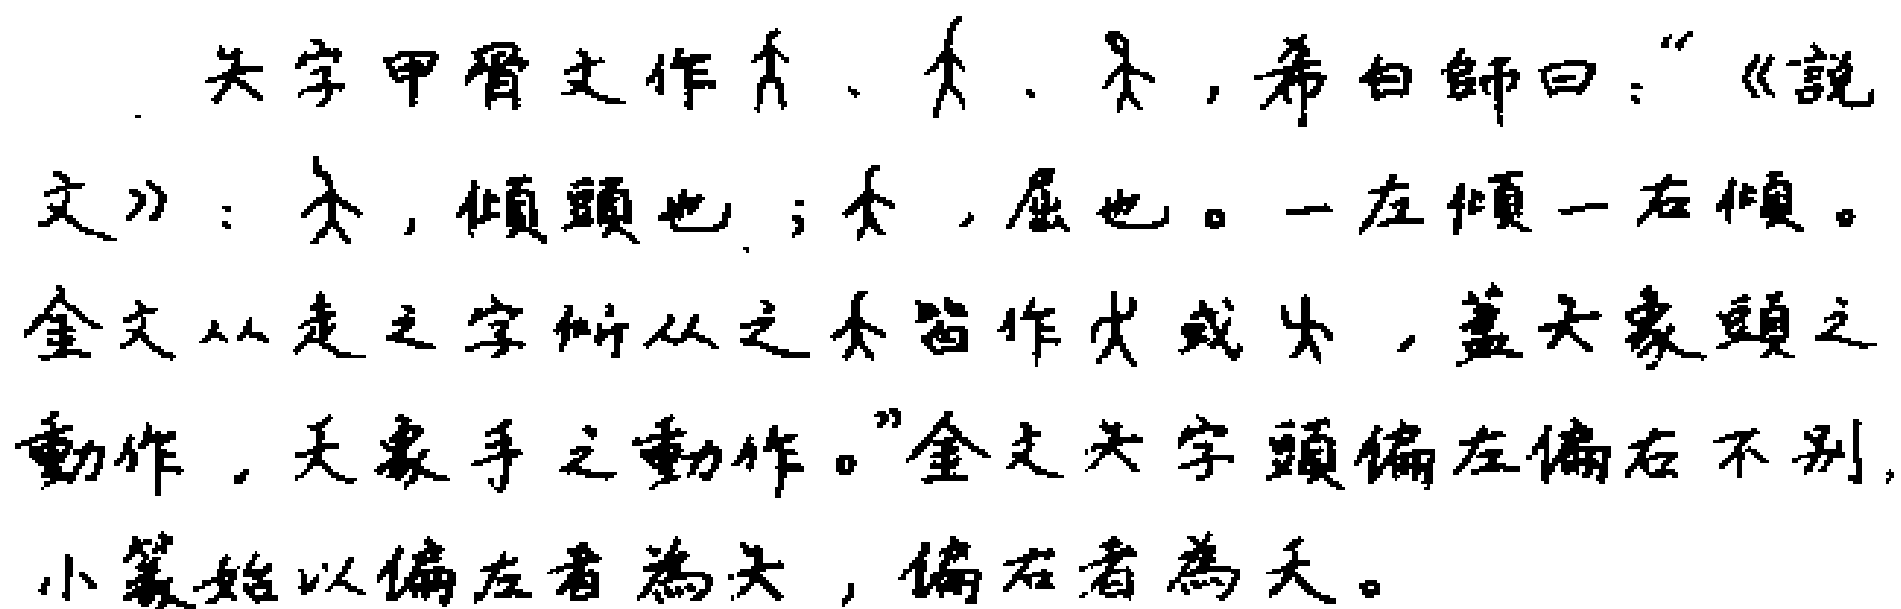 夨字甲骨文作、、，希白師曰：“《説
文》：，傾頭也；，屈也。一左傾一右傾。
金文从走之字所从之皆作或，蓋夨象頭之
動作，夭象手之動作。”金文夨字頭偏左偏右不别，
小篆始以偏左者為夨，偏右者為夭。